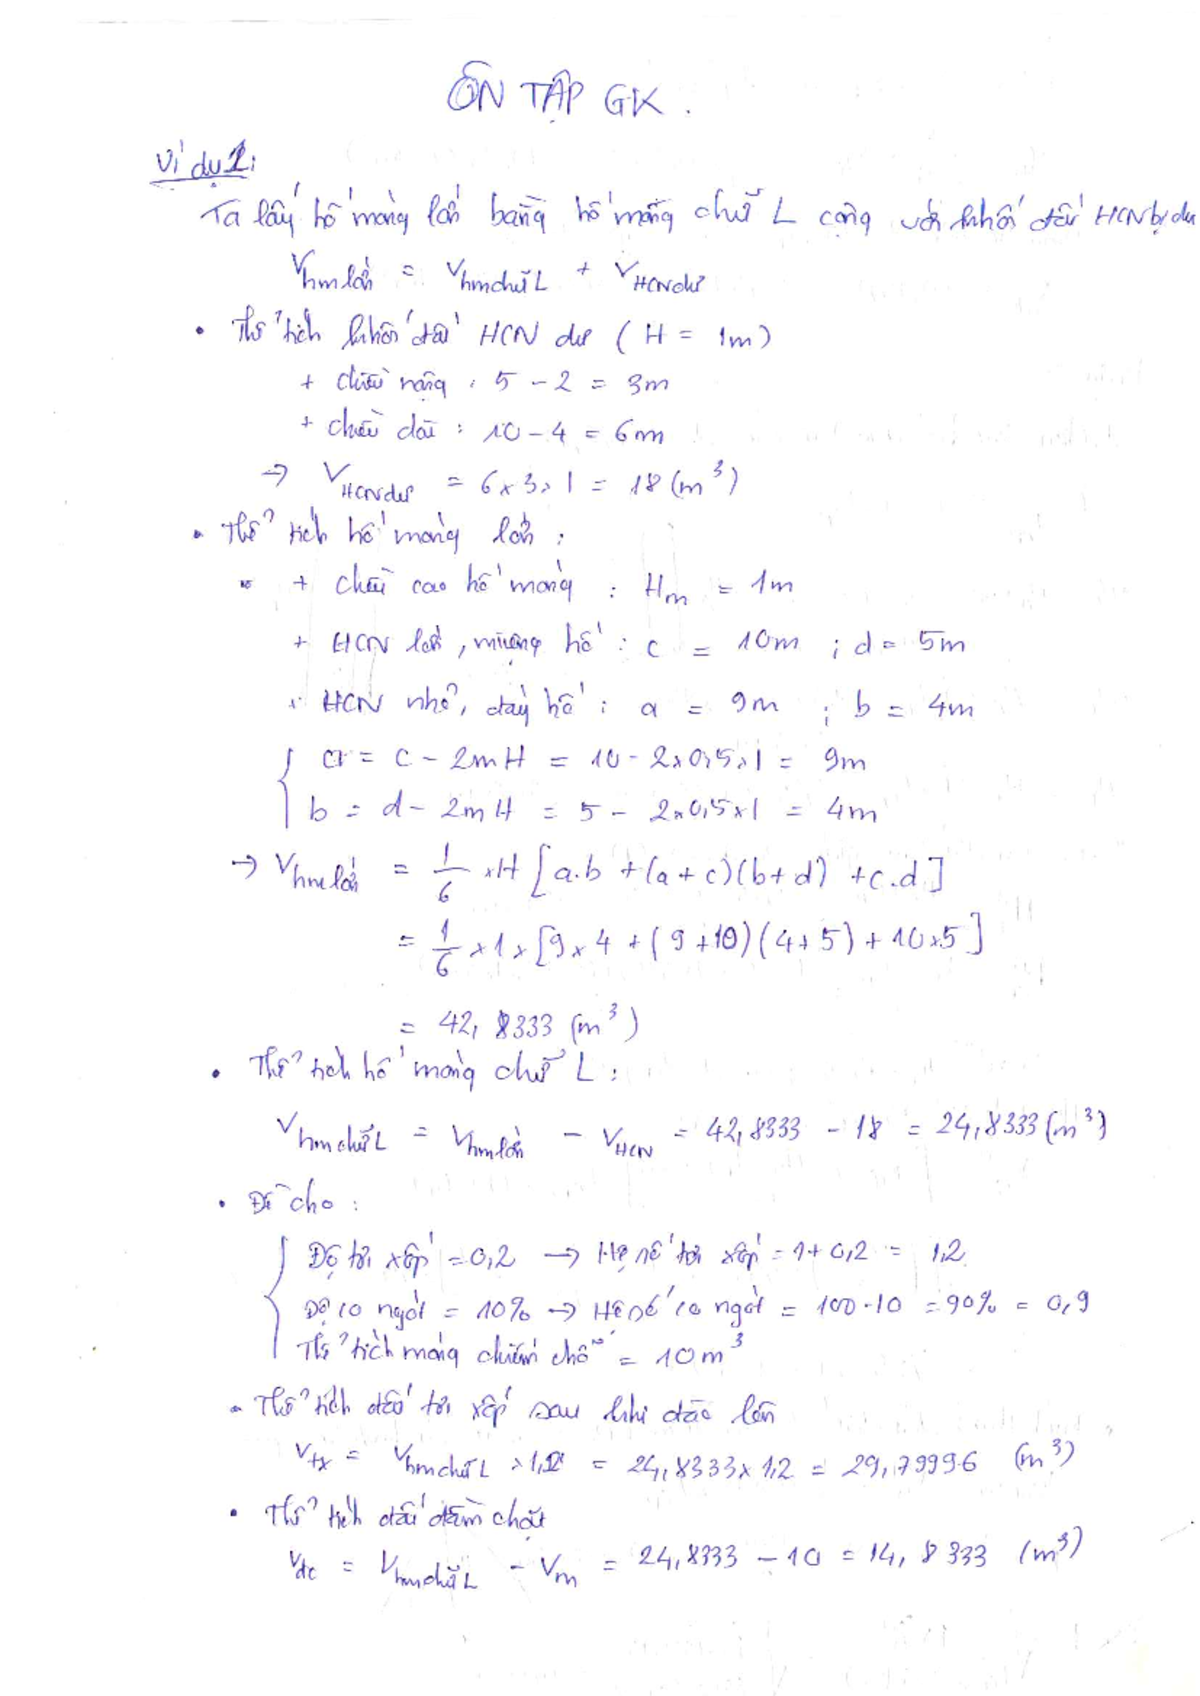 ÔN TẬP GK.
Ví dụ 1:
Ta lấy hố móng lớn bằng hố móng chữ L cộng với khối đất HCN bị dư
Vhm lớn = Vhm chữ L + VHCN dư
• Thể tích khối đất HCN dư (H = 1m)
+ chiều rộng : 5 - 2 = 3m
+ chiều dài : 10 - 4 = 6m
→ VHCN dư = 6 x 3 x 1 = 18 (m³)
• Thể tích hố móng lớn :
+ chiều cao hố móng : Hm = 1m
+ HCN lớn, miệng hố : c = 10m ; d = 5m
+ HCN nhỏ, đáy hố : a = 9m ; b = 4m
{ a = c - 2mH = 10 - 2x0,5x1 = 9m
b = d - 2mH = 5 - 2x0,5x1 = 4m
→ Vhm lớn = 1/6 xH [a.b + (a + c)(b + d) + c.d]
= 1/6 x 1 x [9 x 4 + (9 + 10)(4 + 5) + 10 x 5]
= 42,8333 (m³)
• Thể tích hố móng chữ L :
Vhm chữ L = Vhm lớn - VHCN = 42,8333 - 18 = 24,8333 (m³)
• Đề cho :
{ Độ tơi xốp = 0,2 → Hệ số tơi xốp = 1 + 0,2 = 1,2
Độ co ngót = 10% → Hệ số co ngót = 100 - 10 = 90% = 0,9
Thể tích móng chiếm chỗ = 10m³
- Thể tích đất tơi xốp sau khi đào lên
Vtx = Vhm chữ L x 1,2 = 24,8333 x 1,2 = 29,79996 (m³)
• Thể tích đất đầm chặt
Vđc = Vhm chữ L - Vm = 24,8333 - 10 = 14,8333 (m³)